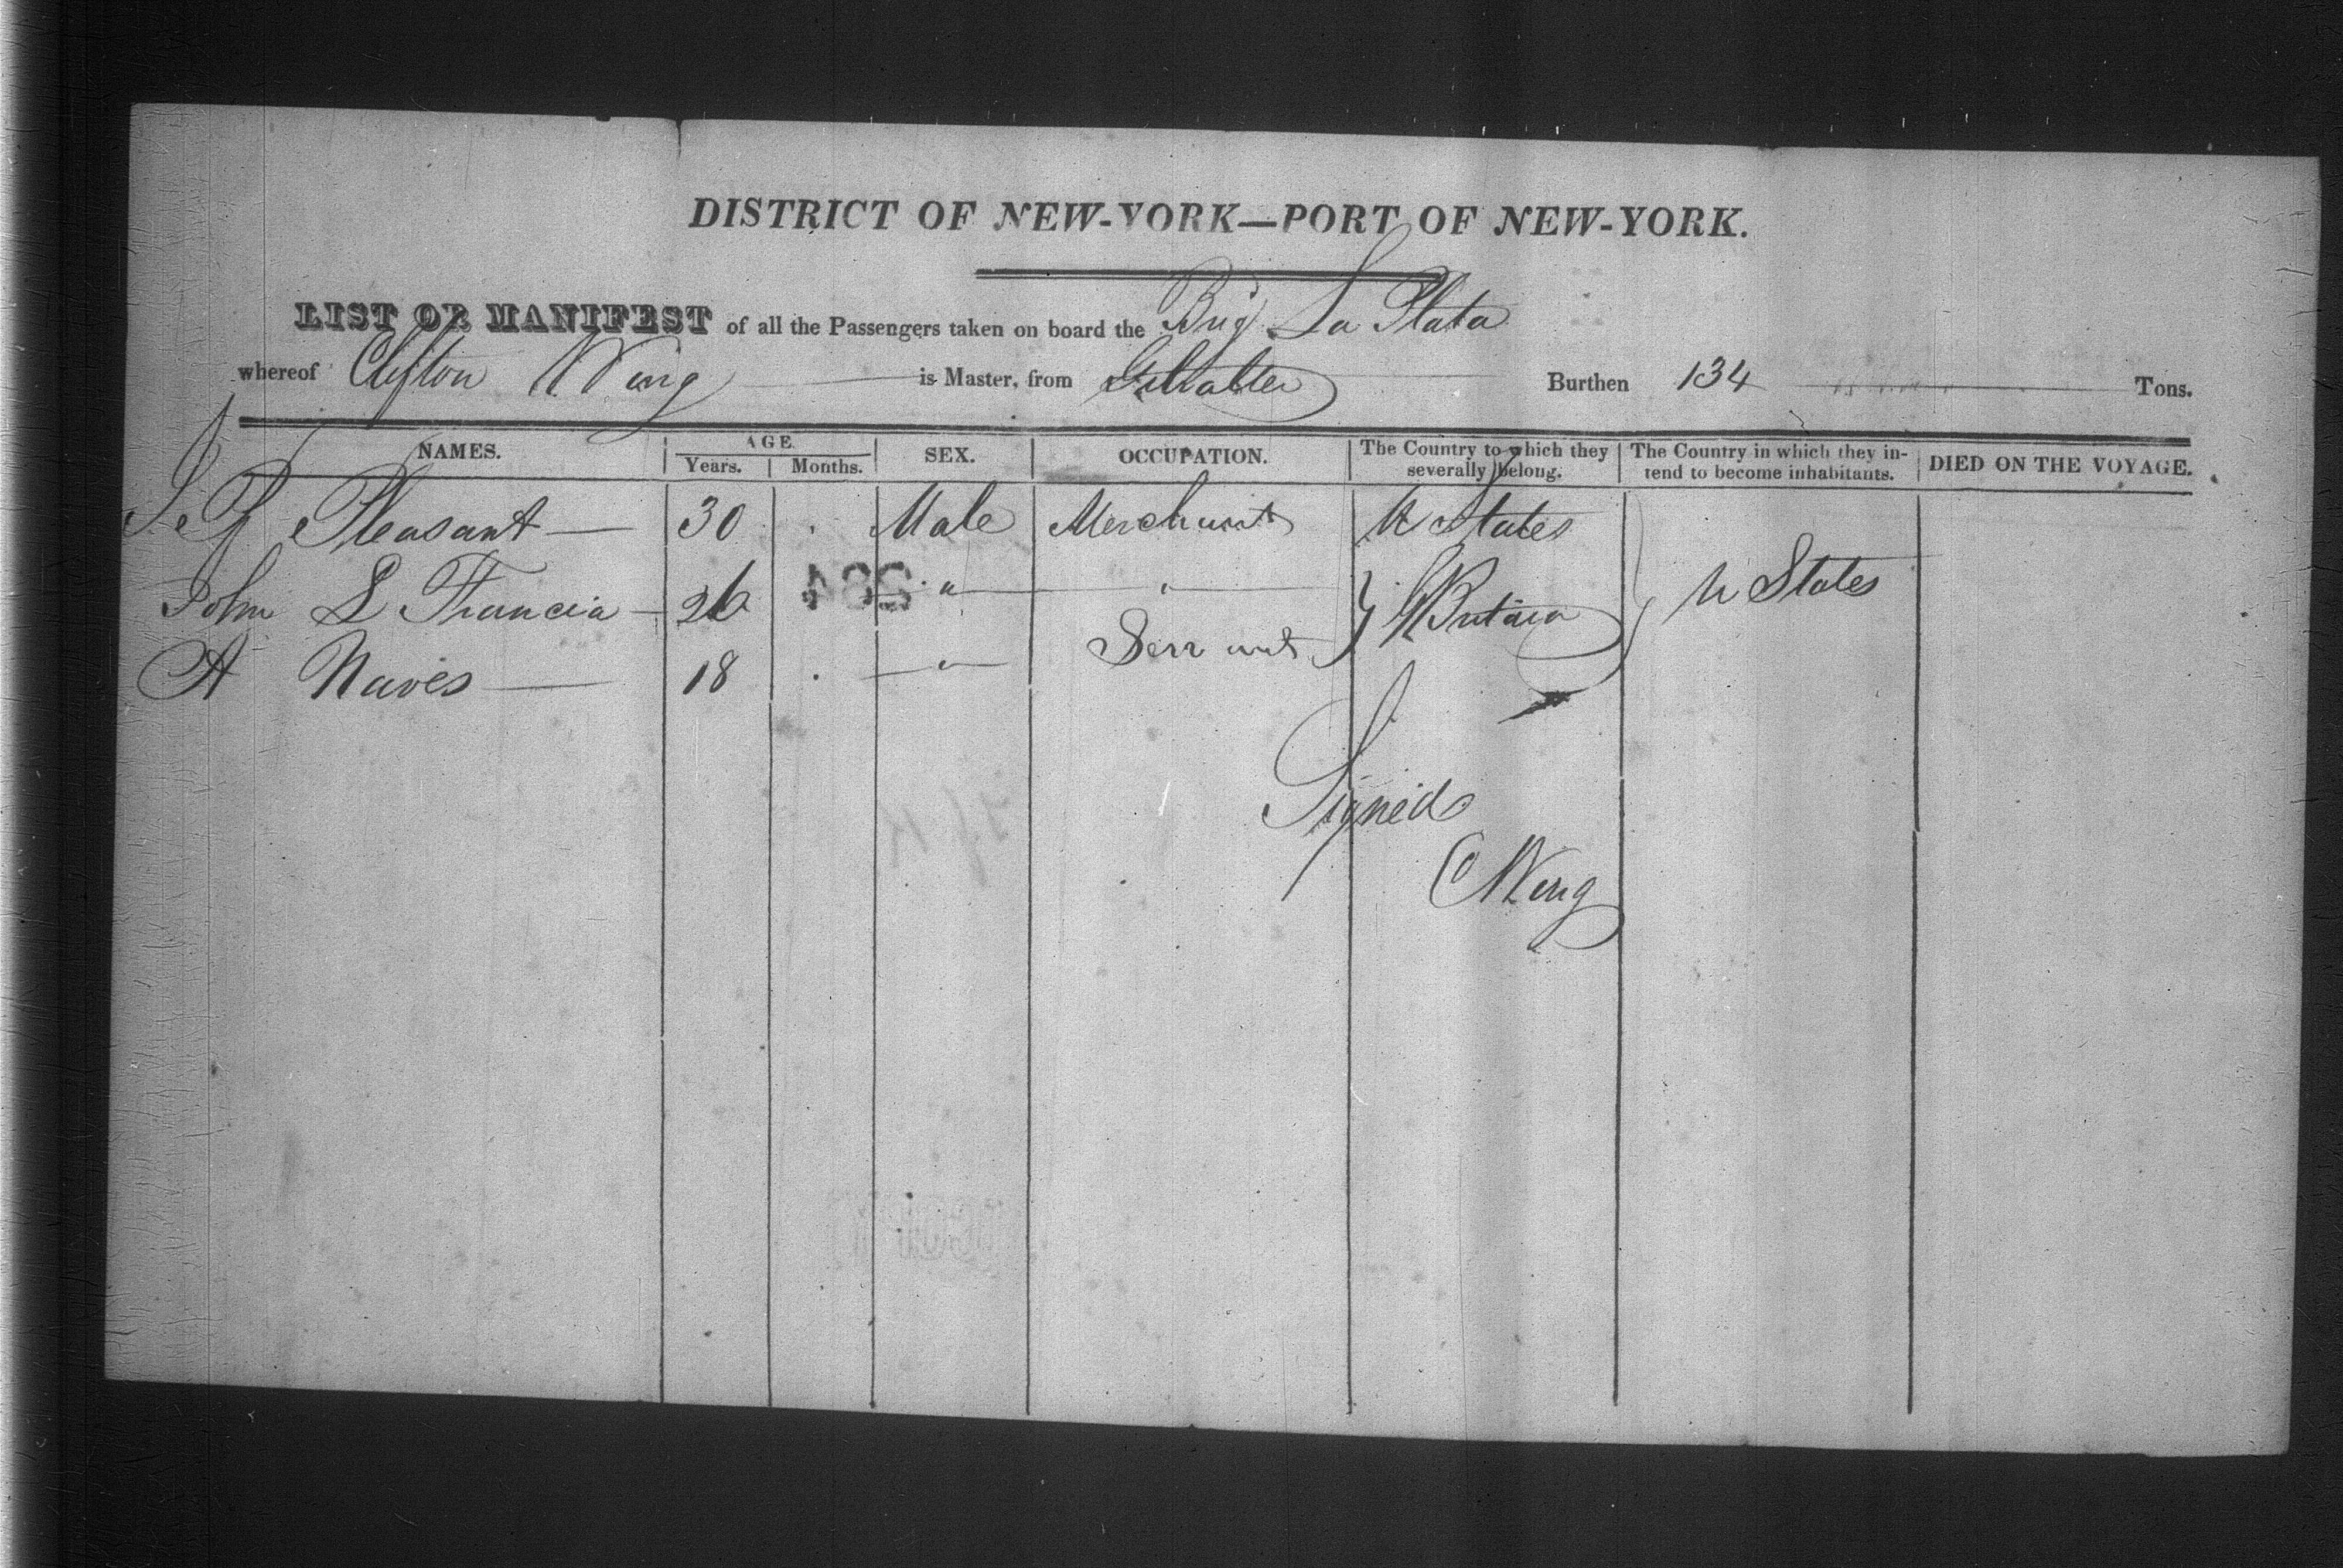 DISTRICT OF NEW-YORK—PORT OF NEW-YORK.
LIST OR MANIFEST of all the Passengers taken on board the Brig La Plata
whereof Clifton Wing is Master, from Gibralter Burthen 134 Tons.
NAMES. AGE. Years. Months. SEX. OCCUPATION. The Country to which they severally belong. The Country in which they intend to become inhabitants. DIED ON THE VOYAGE.
Pleasant 30 Male Merchant U States
John L Francia 26 " " G Britain U States
A Naves 18 " Servant
Signed
C Wing